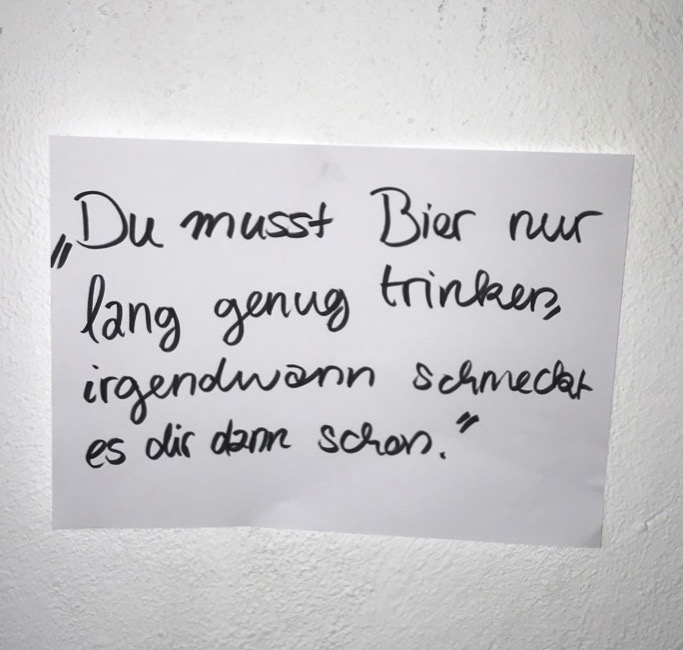 „Du musst Bier nur
lang genug trinken,
irgendwann schmeckt
es dir dann schon.“